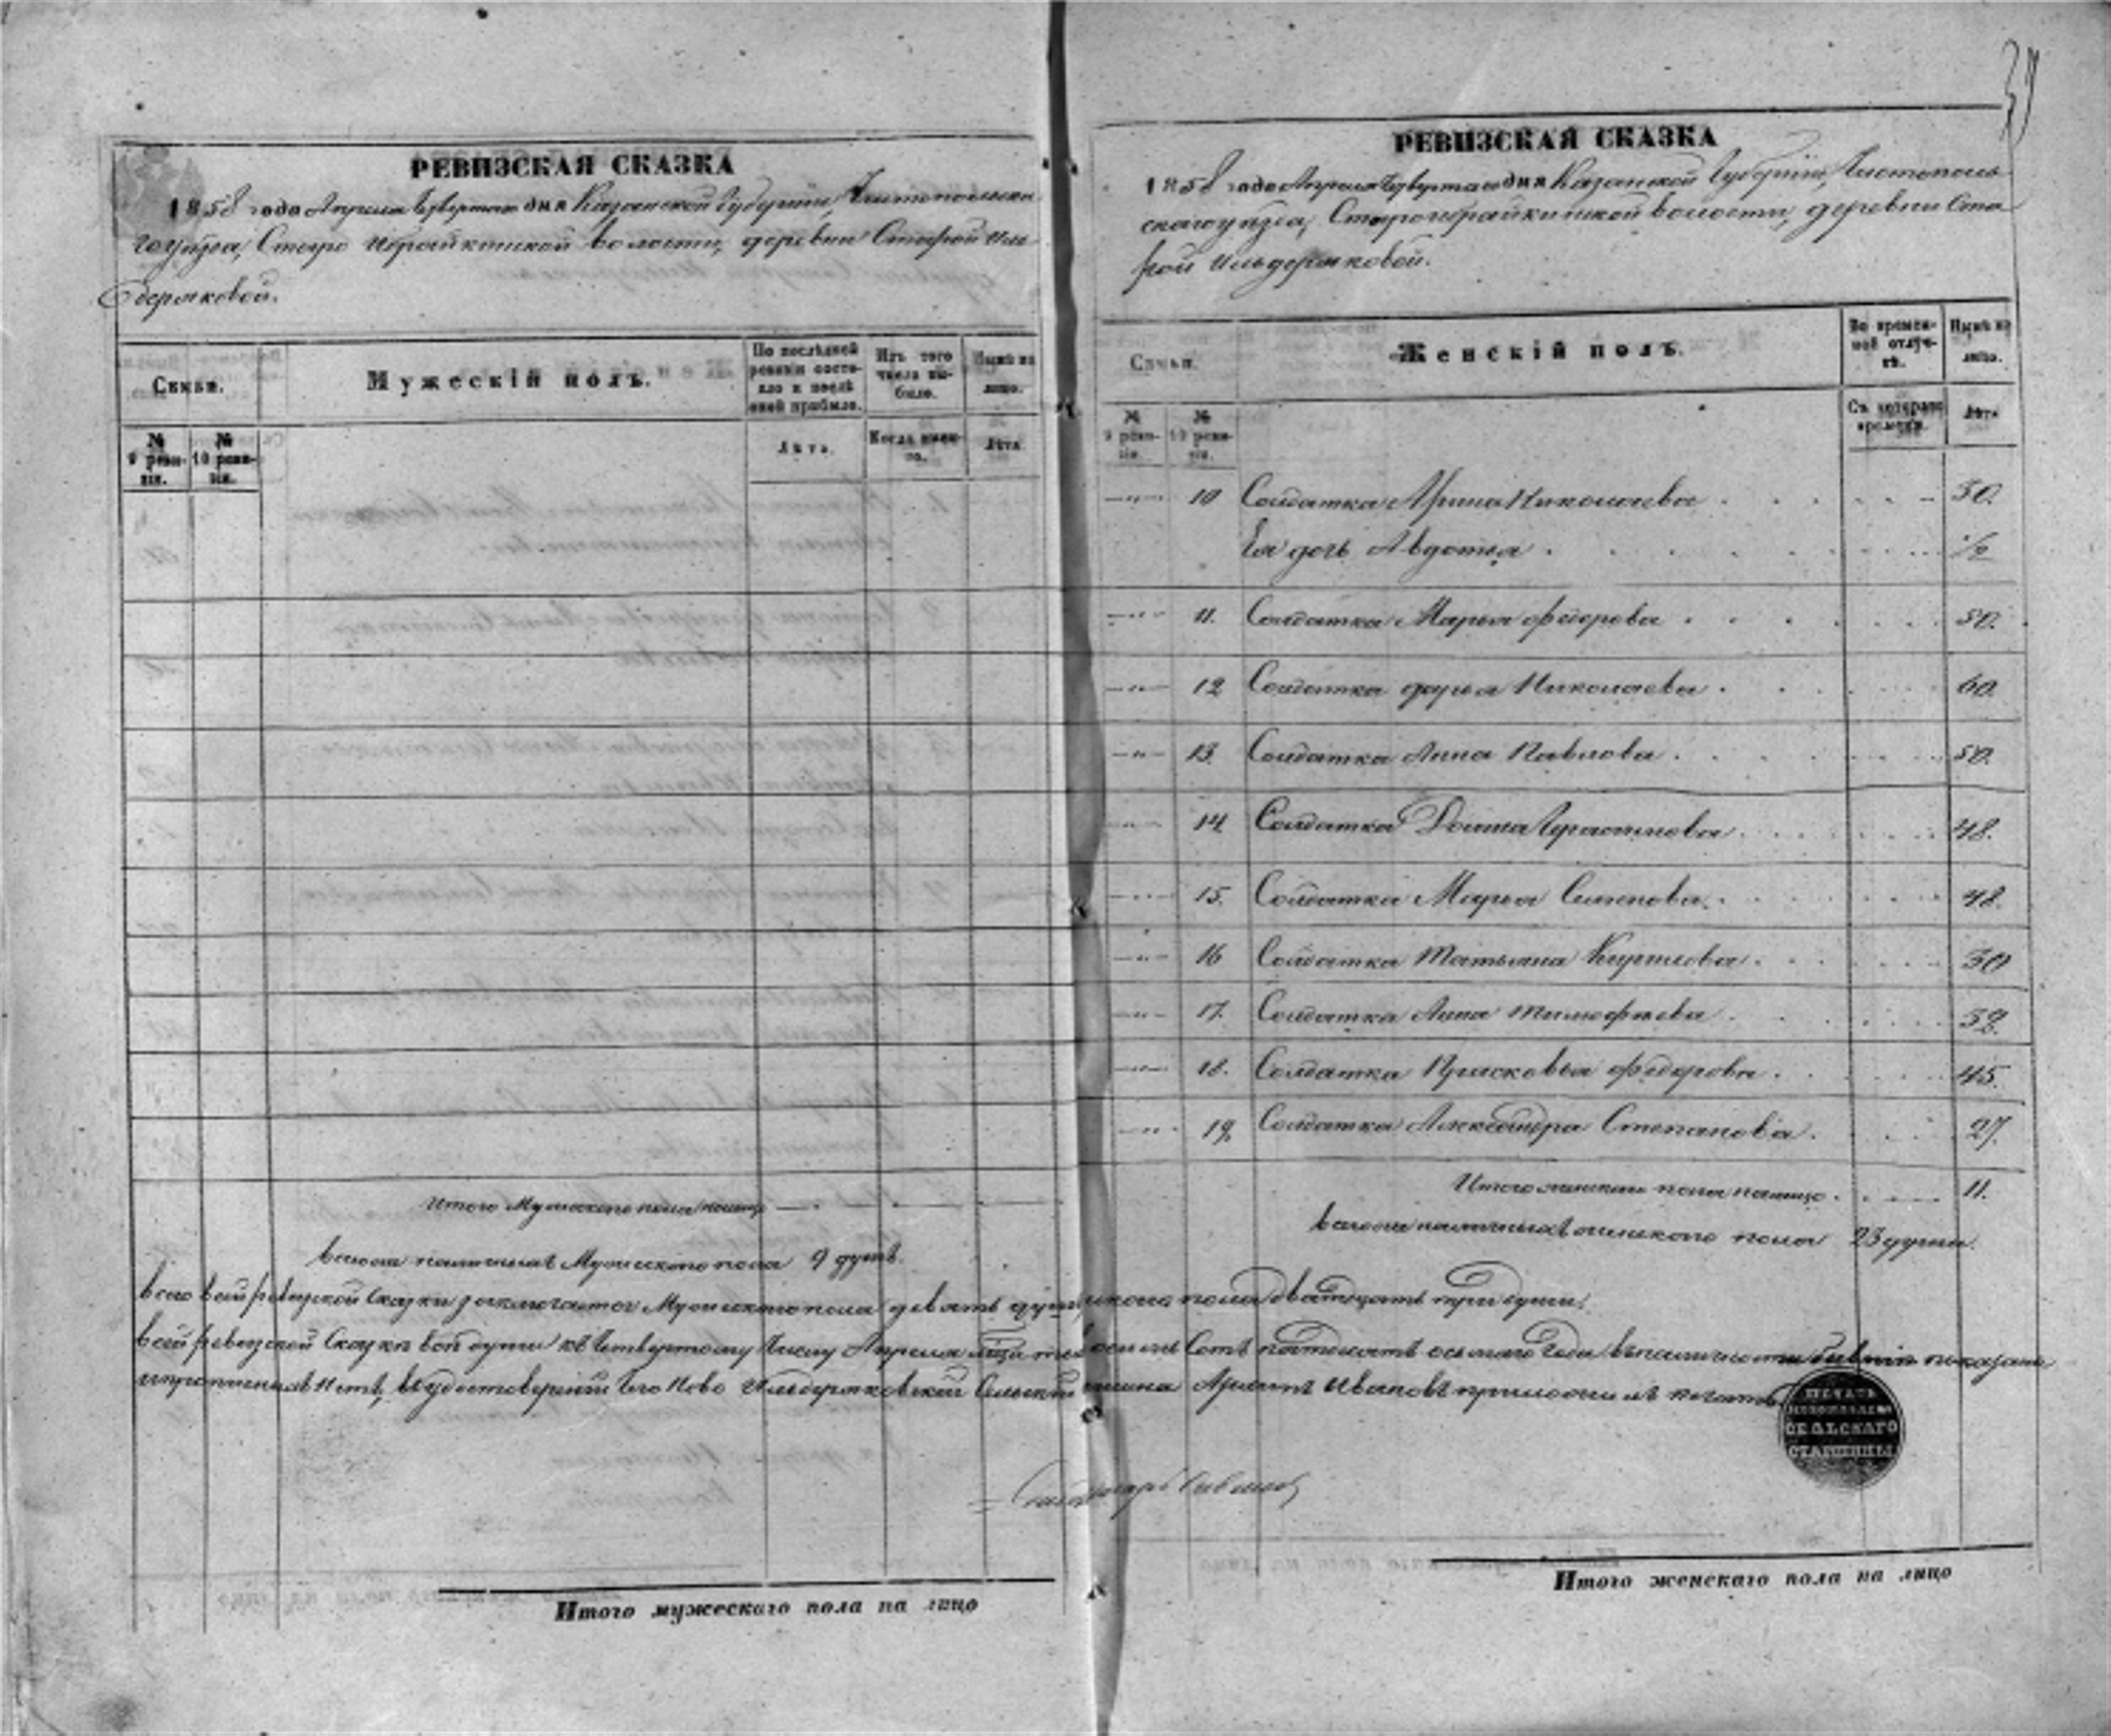 РЕВИЗСКАЯ СКАЗКА
1858 года Апреля Четвертаго дня Казанской Губернiи, Чистопольска
го уѣзда, Старо Ибрайкинской волости, деревни Старой Иль
деряковой.
Семьи.
Мужескiй полъ.
По послѣдней ревизiи состояло и послѣ оной прибыло.
Изъ того числа выбыло.
Нынѣ на лицо.
№ 9 ревизiи.
№ 10 ревизiи.
Лѣта.
Когда именно.
Лѣта.
Итого Мужескаго пола налицо
всего наличныхъ Мужескаго пола 9 душъ.
РЕВИЗСКАЯ СКАЗКА
1858 года Апреля Четвертаго дня Казанской Губернiи, Чистополь
скаго уѣзда, Староибрайкинской волости, деревни Ста
рой Ильдеряковой.
Семьи.
Женскiй полъ.
Во временной отлучкѣ.
Нынѣ на лицо.
№ 9 ревизiи.
№ 10 ревизiи.
Съ котораго времени.
Лѣта
10 Солдатка Арина Николаева 30.
Ея дочь Авдотья 1/2
11. Солдатка Марья Федорова 50.
12 Солдатка Дарья Николаева 60.
13. Солдатка Анна Павлова 50.
14 Солдатка Домна Герасимова 48.
15. Солдатка Марья Семенова 48.
16 Солдатка Татьяна Кирилова 30
17. Солдатка Анна Тимофѣева 32.
18. Солдатка Прасковья Федорова 45.
19. Солдатка Александра Степанова 27.
Итого женскаго пола налицо 11.
всего наличныхъ женскаго пола 23 души.
всего в сей ревизской Сказки заключается Мужескаго пола девять душ, женскаго пола двадцать три души.
В сей ревизской Сказки все души къ Четвертому Числу Апреля тысяча восемь Сотъ пятьдесятъ осьмаго Года въ наличности бывшiя показаны
и прописныхъ Нетъ, в Удостоверенiи Чего Ново Ильдеряковскiй Сельскiй старшина Иванов приложилъ печать
ПЕЧАТЬ
СЕЛЬСКАГО
СТАРШИНЫ
Итого мужескаго пола на лицо
Итого женскаго пола на лицо